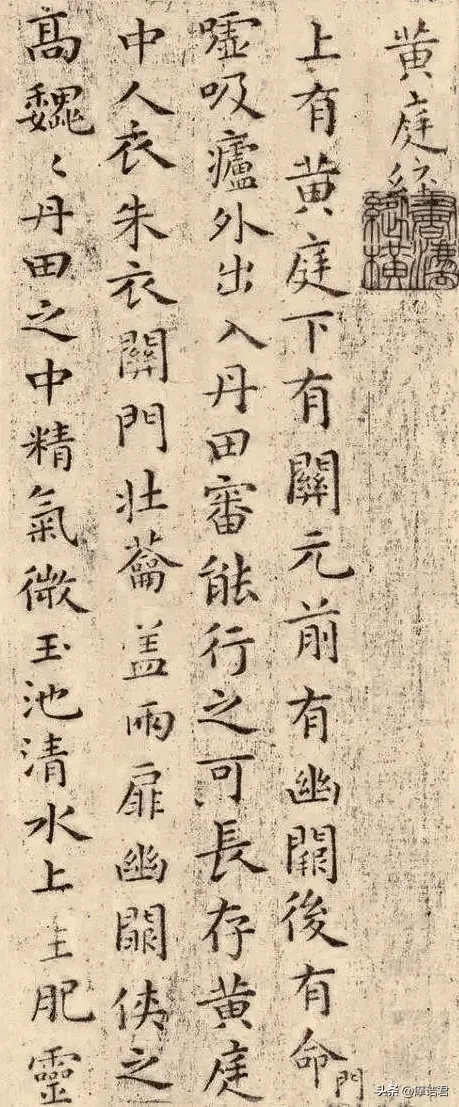 黄庭經
上有黄庭下有關元前有幽闕後有命門
嘘吸廬外出入丹田審能行之可長存黄庭
中人衣朱衣關門壯蘥盖兩扉幽闕俠之
高巍〻丹田之中精氣微玉池清水上生肥靈
头条 @摩诘君